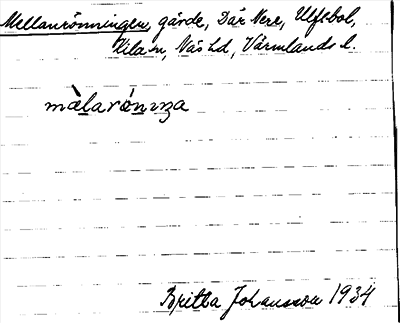 Mellanrönningen, gärde, Där Nere, Ulfsbol,
Kila sn, Näs hd, Värmlands l.
màlarónıŋa
Britta Johansson 1934